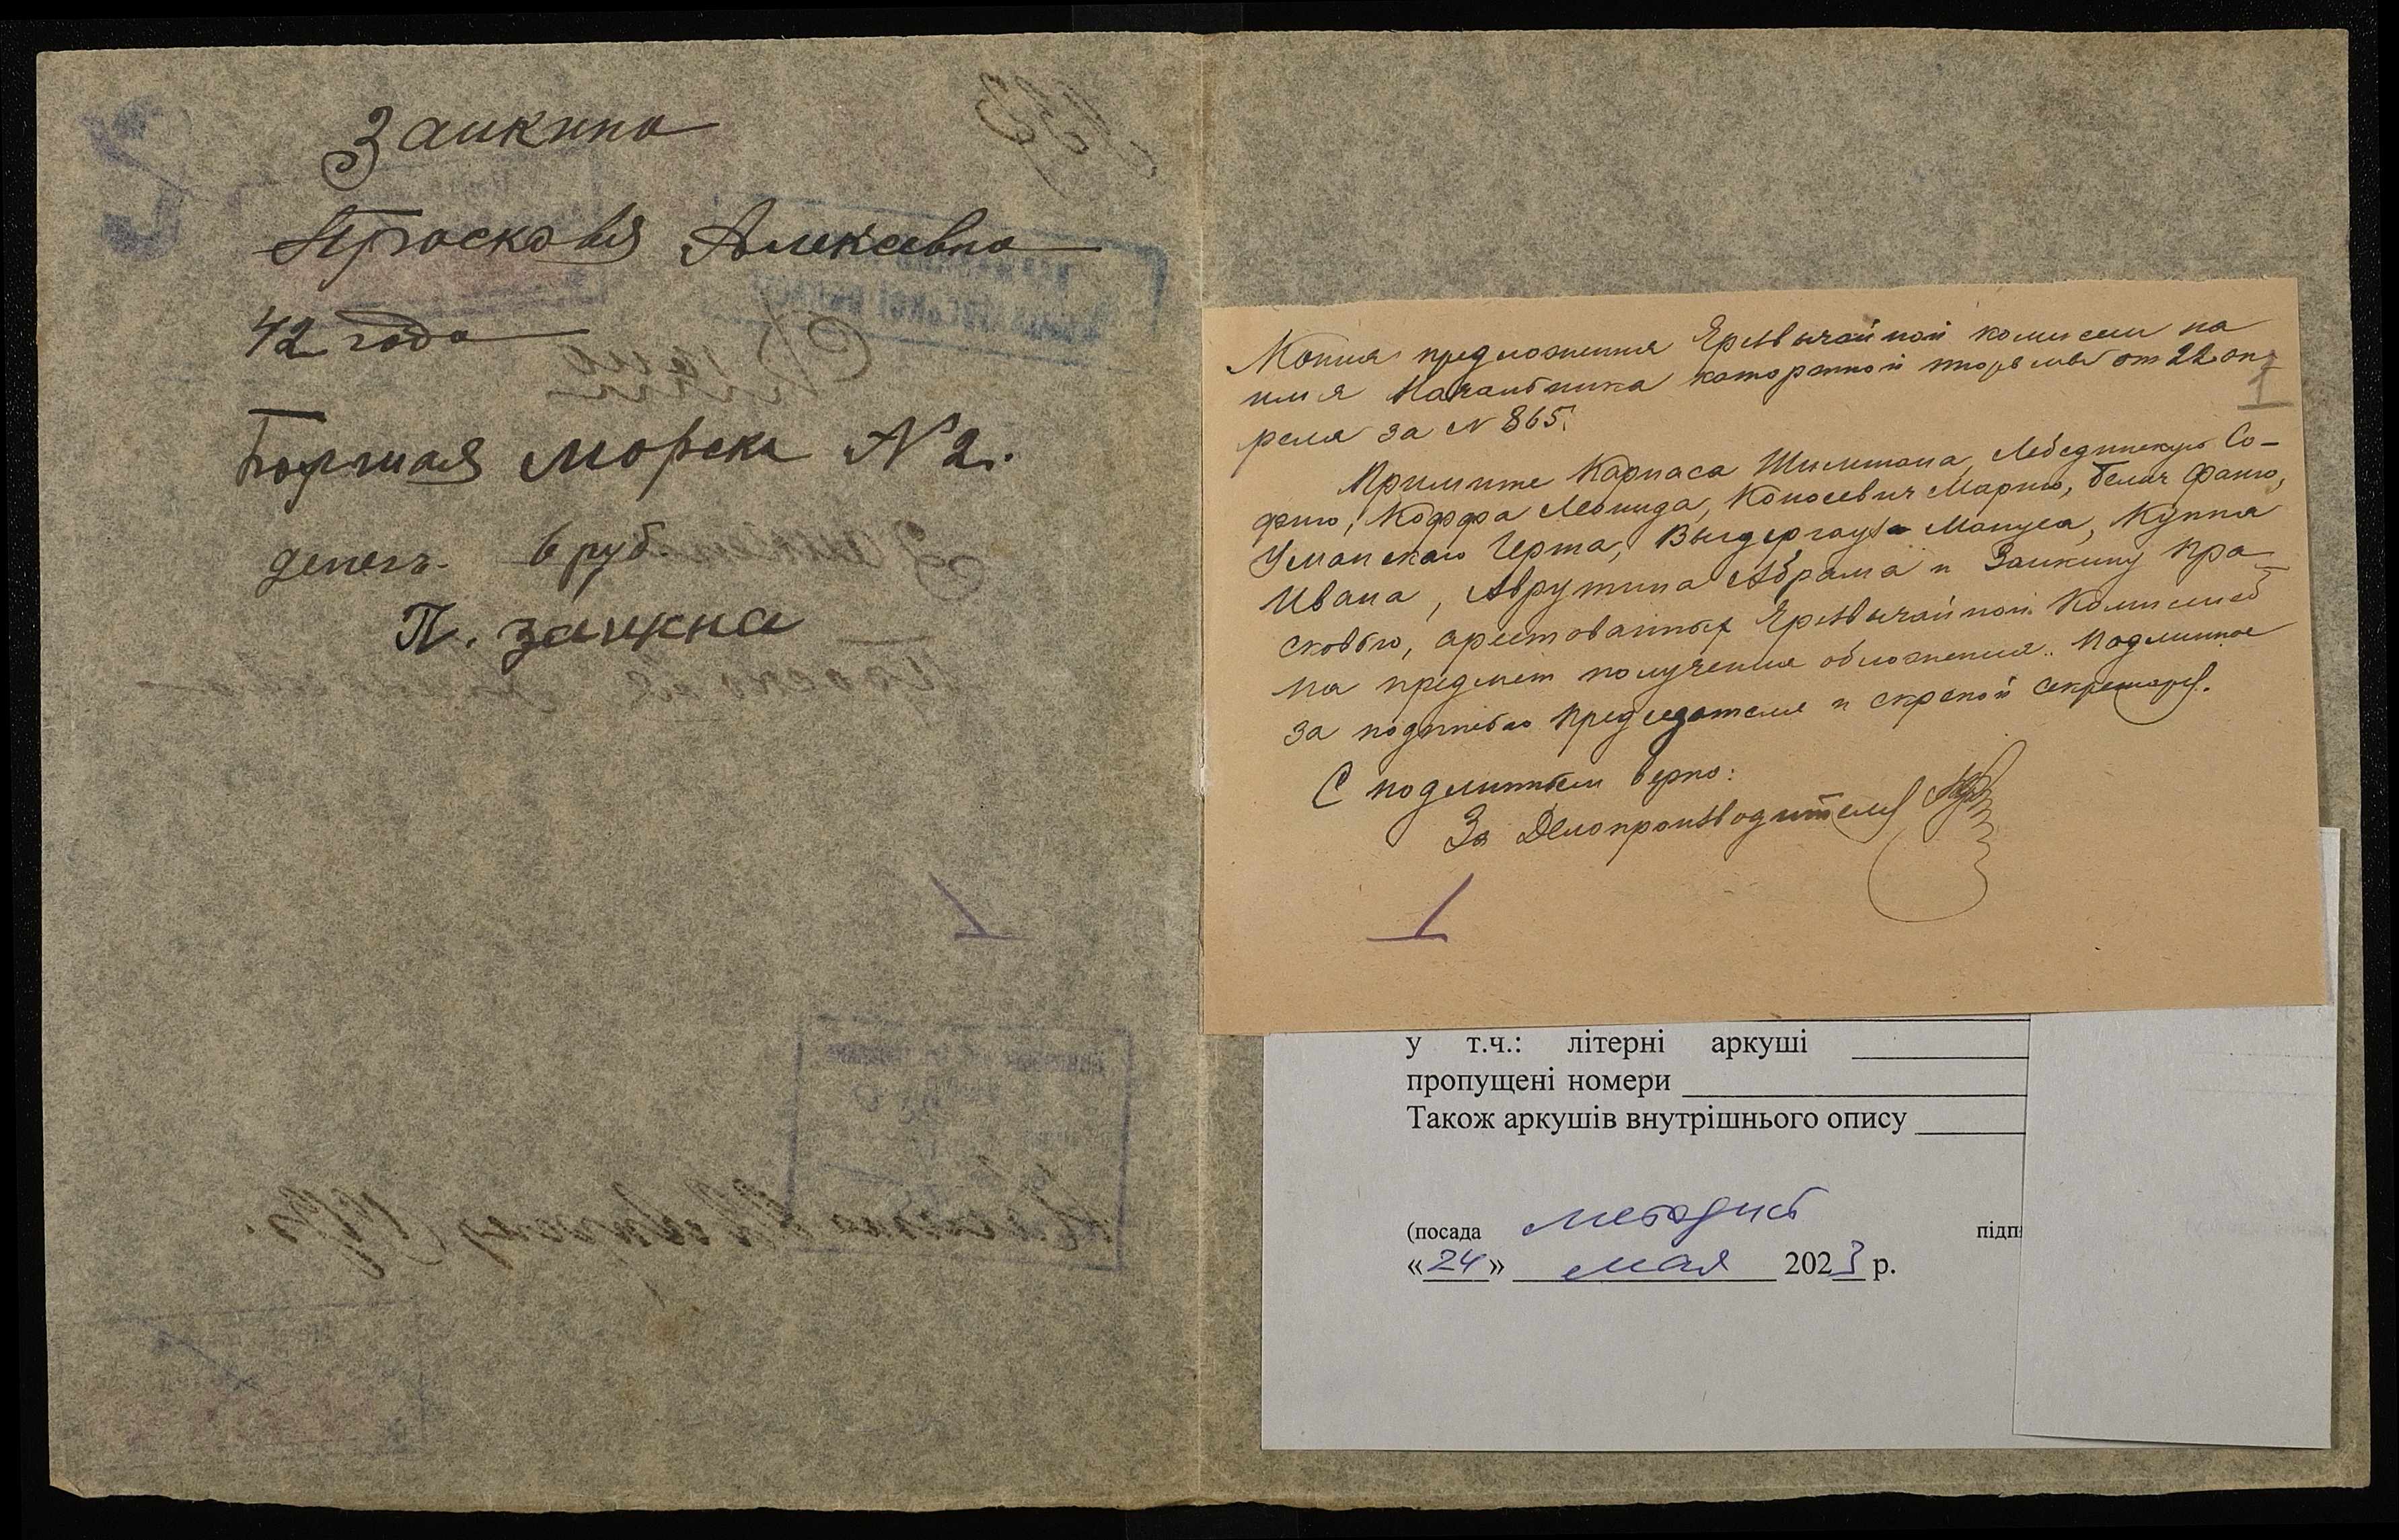 Заикина
Прасковья Алексевна
42 года
Большая Морска N 2.
денег. 6 руб.
П. заикна
Копия предложения Чрезвычайной комиссии на
имя Начальника каторжной тюрьмы от 22 ап-
реля за N 865.
1
Примите Карпаса Шильмана, Лебединскую Со-
фию, Коффа Леонида, Коносевич Марию, Белич Фаню,
Уманскаго Герша, Выдергауз Мануса, Куппа
Ивана, Аврутина Абрама и Заикину Пра-
сковью, арестованных Чрезвычайной Комиссией
на предмет получения обложения. Подлинное
за подписью Председателя и скрепой Секретаря.
С подлинным верно:
За Делопроизводителя
1
у т.ч.: літерні аркуші
пропущені номери
Також аркушів внутрішнього опису
(посада методист підп
«24» мая 2023 р.